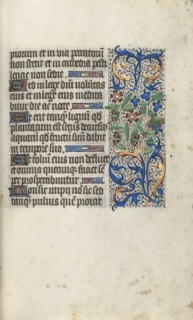 piorum et in via peccatorum
non stetit et in cathedra pesti
lencie non sedit
Sed in lege dni voluntas
eius et in lege eius medita
bitur die ac nocte
Et erit tanq lignum qd
plantatum est secus decursus
aquarum qd fructum suum dabit
in tempore suo
Et folium eius non defluet
et omnia quecunq faciet
prosperabuntur
Non sic impii non sic sed
tanq pulvis que proicit